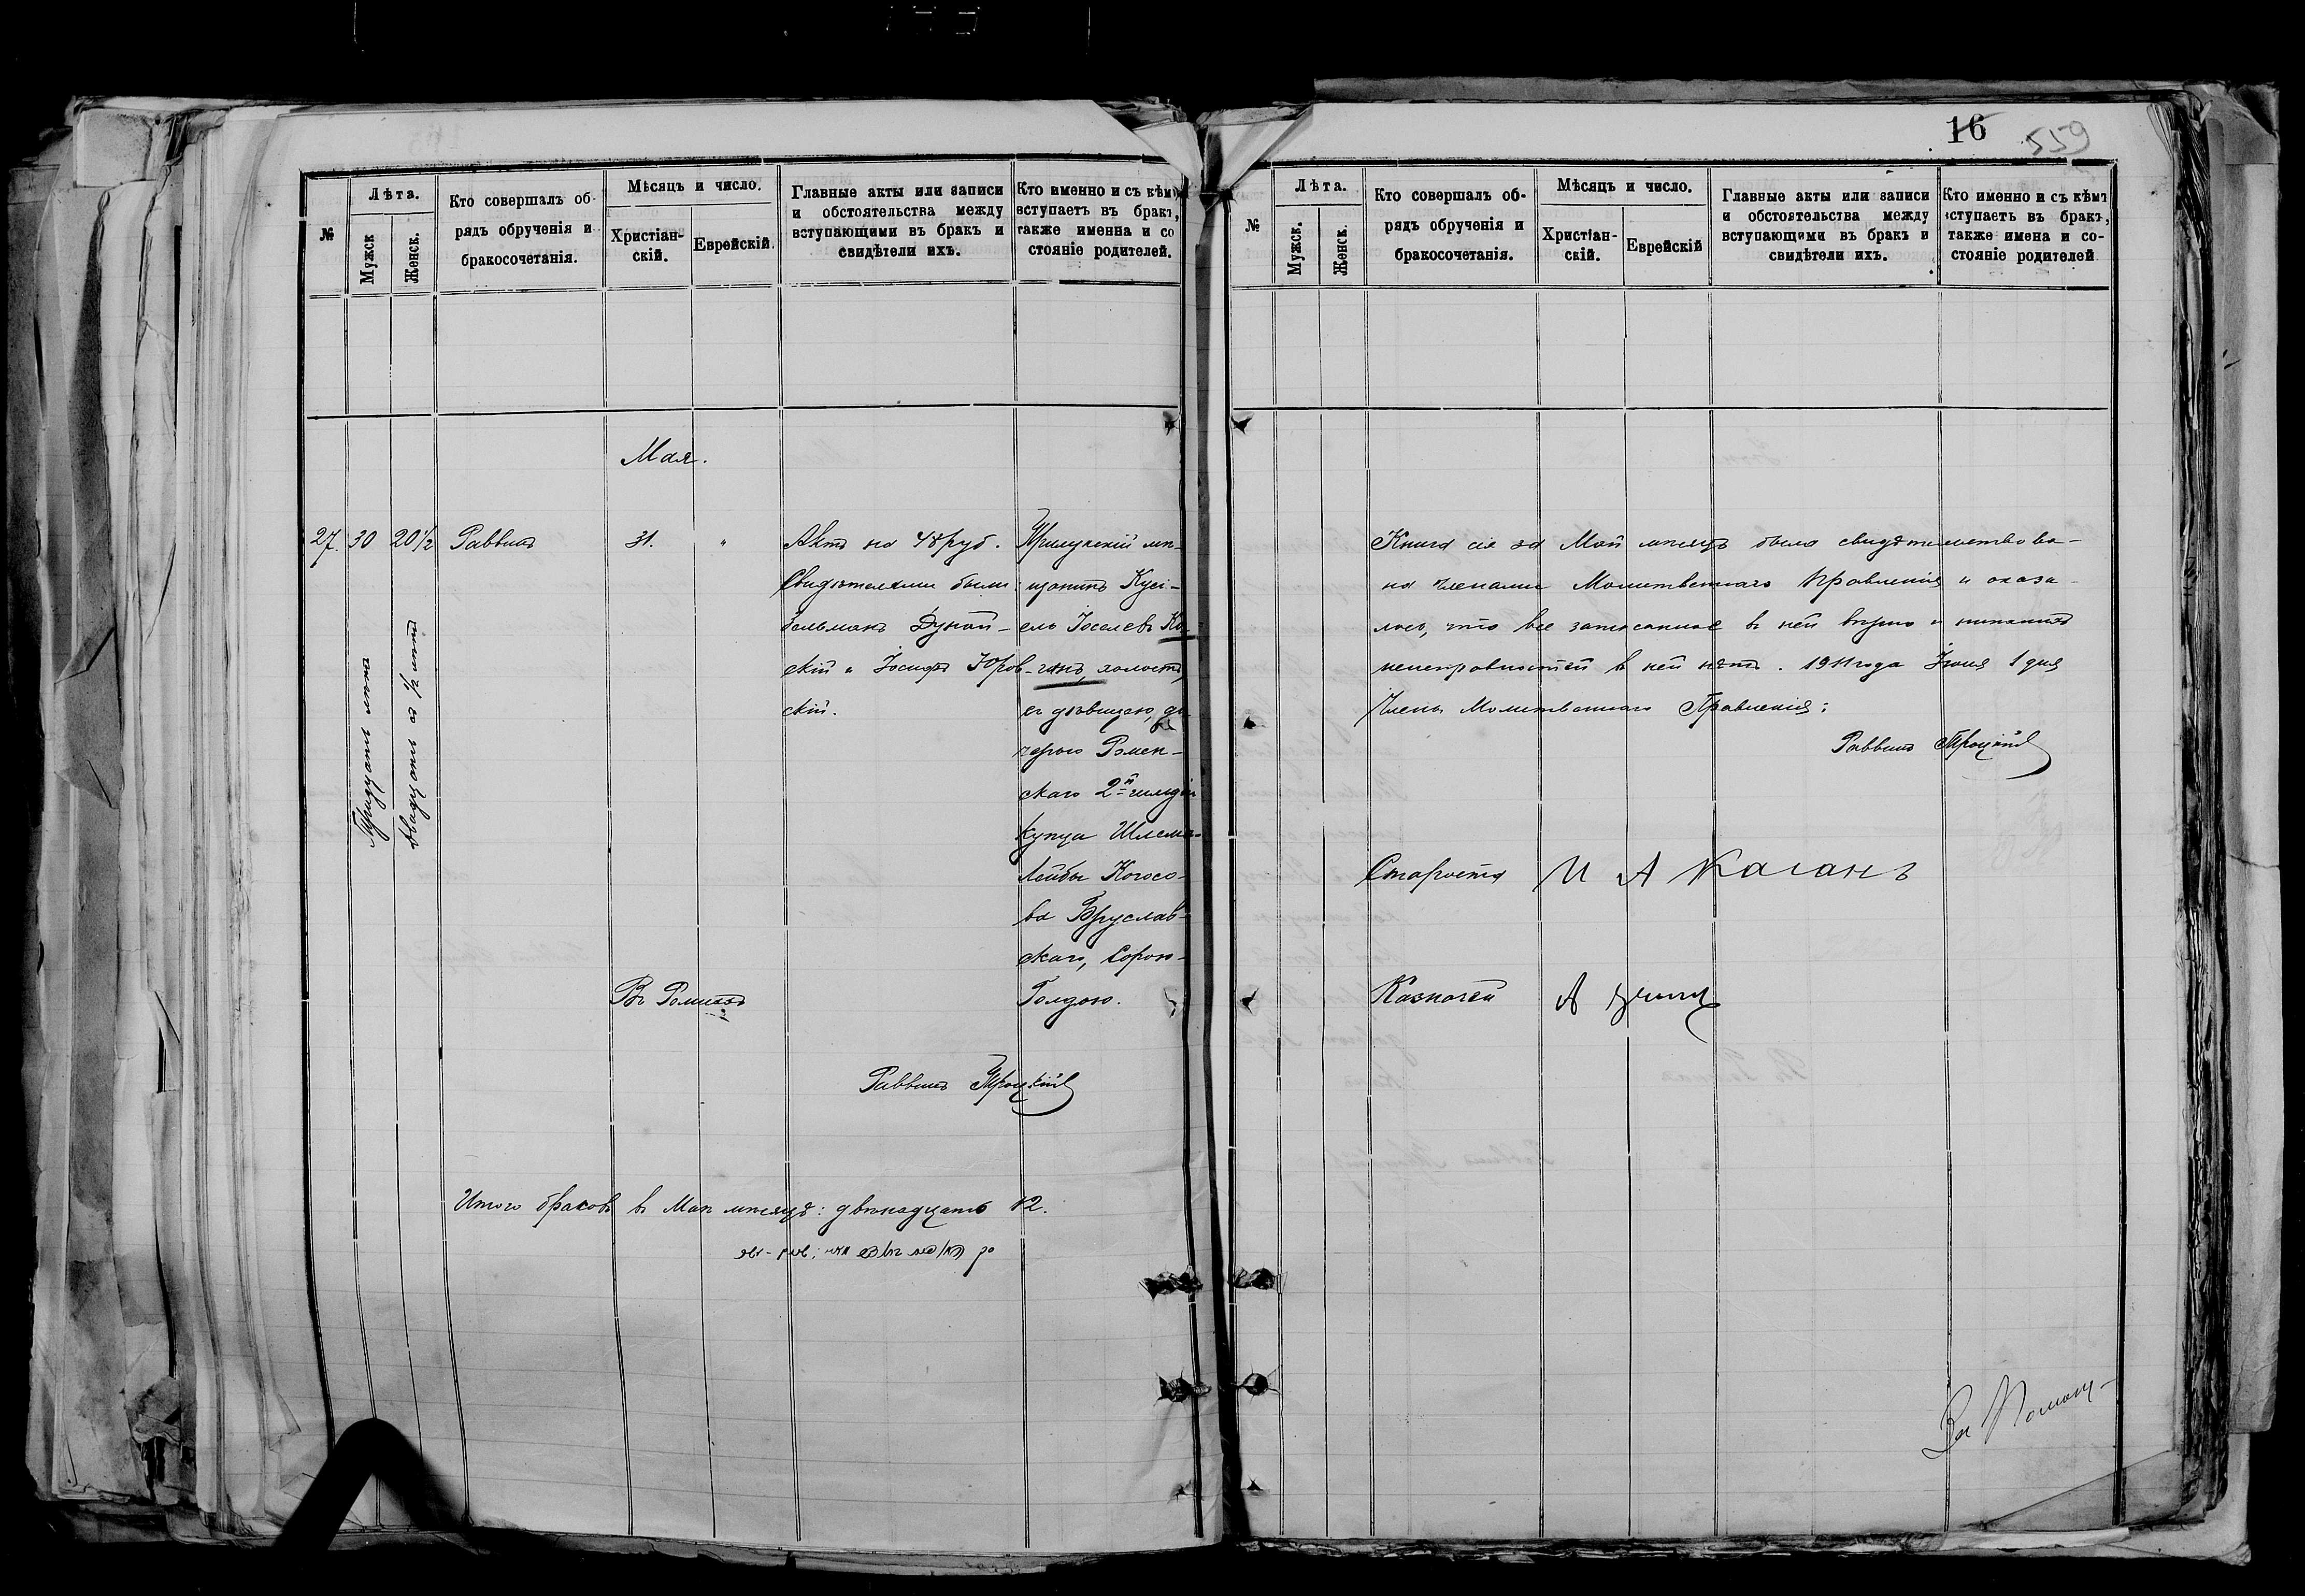 №
Лѣта.
Мужск
Женск.
Кто совершалъ об-
рядъ обрученія и
бракосочетанія.
Мѣсяцъ и число.
Христіан-
скій.
Еврейскій.
Главные акты или записи
и обстоятельства между
вступающими въ бракъ и
свидѣтели ихъ.
Кто именно и съ кѣмъ
вступаетъ въ бракъ,
также именна и со
стояніе родителей.
Мая.
27. 30 20½ Раввинъ 31. „
Тридцать лѣтъ
двадцать съ ½ лѣтъ
Актъ на 48 руб.
Свидѣтелями были:
Зельманъ Дунай-
скій и Іосифъ Юров-
скій.
Прилукскій мѣ-
щанинъ Кусі-
ель Іоселевъ Ко-
ганъ, холостъ,
съ дѣвицею, до-
черью Ромен-
скаго 2й гильдіи
купца Шлема-
Лейбы
Бруслав-
скаго, Сорою-
Голдою.
Въ Ромнахъ
Раввинъ Троцкій
Итого браковъ въ Маѣ мѣсяцѣ: двѣнадцать 12.
16
559
№
Лѣта.
Мужск.
Женск.
Кто совершалъ об-
рядъ обрученія и
бракосочетанія.
Мѣсяцъ и число.
Христіан-
скій.
Еврейскій
Главные акты или записи
и обстоятельства между
вступающими въ бракъ и
свидѣтели ихъ.
Кто именно и съ кѣмъ
вступаетъ въ бракъ,
также имена и со-
стояніе родителей
Книга сія за Май мѣсяцъ была свидѣтельствова-
на членами Молитвеннаго Правленія и оказа-
лось, что все записанное въ ней вѣрно и никакихъ
неисправностей въ ней нѣтъ. 1911 года Іюня 1 дня
Члены Молитвеннаго Правленія:
Раввинъ Троцкій
Староста И А Каганъ
Казначей А
За